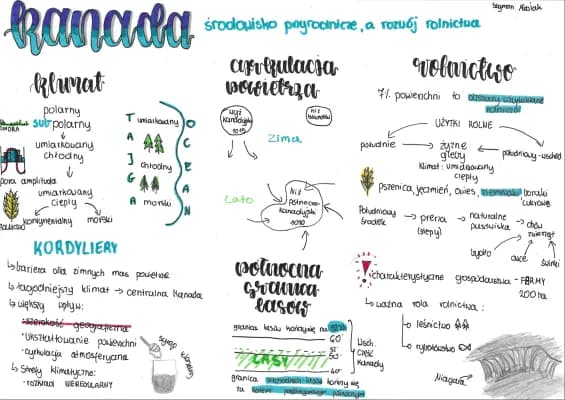 kanada
środowisko przyrodnicze, a rozwój rolnictwa
Szymon
klimat
polarny
subpolarny
umiarkowany
chłodny
pora amplituda
umiarkowany
ciepły
kontynentalny
morski
TAJGA
umiarkowany
chłodny
morski
OCEAN
KORDYLIERY
↳ bariera dla zimnych mas powietrza
↳ łagodniejszy klimat → centralna Kanada
↳ większy wpływ:
szerokość geograficzna
• ukształtowanie powierzchni
• cyrkulacja atmosferyczna
↳ Strefy klimatyczne:
• rozkład NIEREGULARNY
syrop klonowy
cyrkulacja
powietrza
wyż
kanadyjski
niż
Zima
Lato
Niż
północno-
kanadyjski
1010
północna
granica
lasów
granica lasów kończy się na
60°
LASY
50°
Wsch.
część
Kanady
granica zachodnich lasów kończy się
za kołem podbiegunowym północnym
rolnictwo
7% powierzchni to obszary użytkowane
rolniczo
UŻYTKI ROLNE
południe
żyzne
gleby
południowy-wschód
klimat: umiarkowany
ciepły
pszenica, jęczmień, owies, ziemniaki buraki
cukrowe
Południowy
środek
preria
(stepy)
naturalne
pastwiska
chów
zwierząt
bydło
owce
świnki
charakterystyczne gospodarstwa - FARMY
200 ha
↳ ważna rola rolnictwa:
↳ leśnictwo
↳ rybołówstwo
Niagara